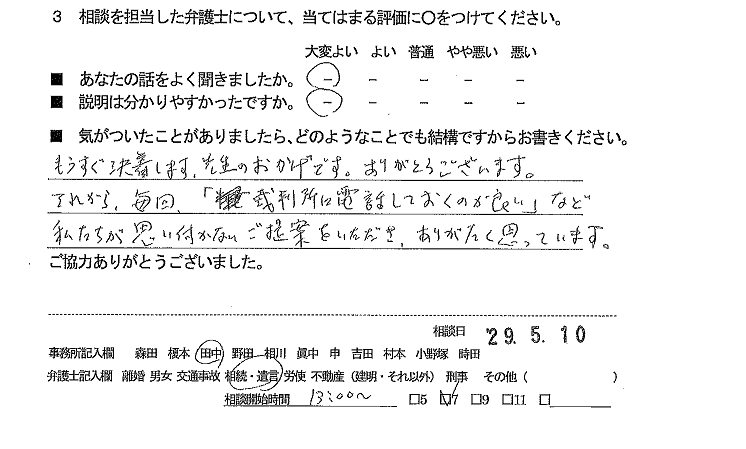 3 相談を担当した弁護士について、当てはまる評価に〇をつけてください。
大変よい よい 普通 やや悪い 悪い
■ あなたの話をよく聞きましたか。 － － － － －
■ 説明は分かりやすかったですか。 － － － － －
■ 気がついたことがありましたら、どのようなことでも結構ですからお書きください。
もうすぐ決着します。先生のおかげです。ありがとうございます。
それから、毎回、「裁判所に電話しておくのが良い」など
私たちが思い付かないご提案をいただき、ありがたく思っています。
ご協力ありがとうございました。
相談日 '29. 5. 10
事務所記入欄 森田 榎本 田中 野田 相川 眞中 申 吉田 村本 小野塚 時田
弁護士記入欄 離婚 男女 交通事故 相続・遺言 労使 不動産（建明・それ以外） 刑事 その他（ ）
相談開始時間 13:00～ □5 □7 □9 □11 □